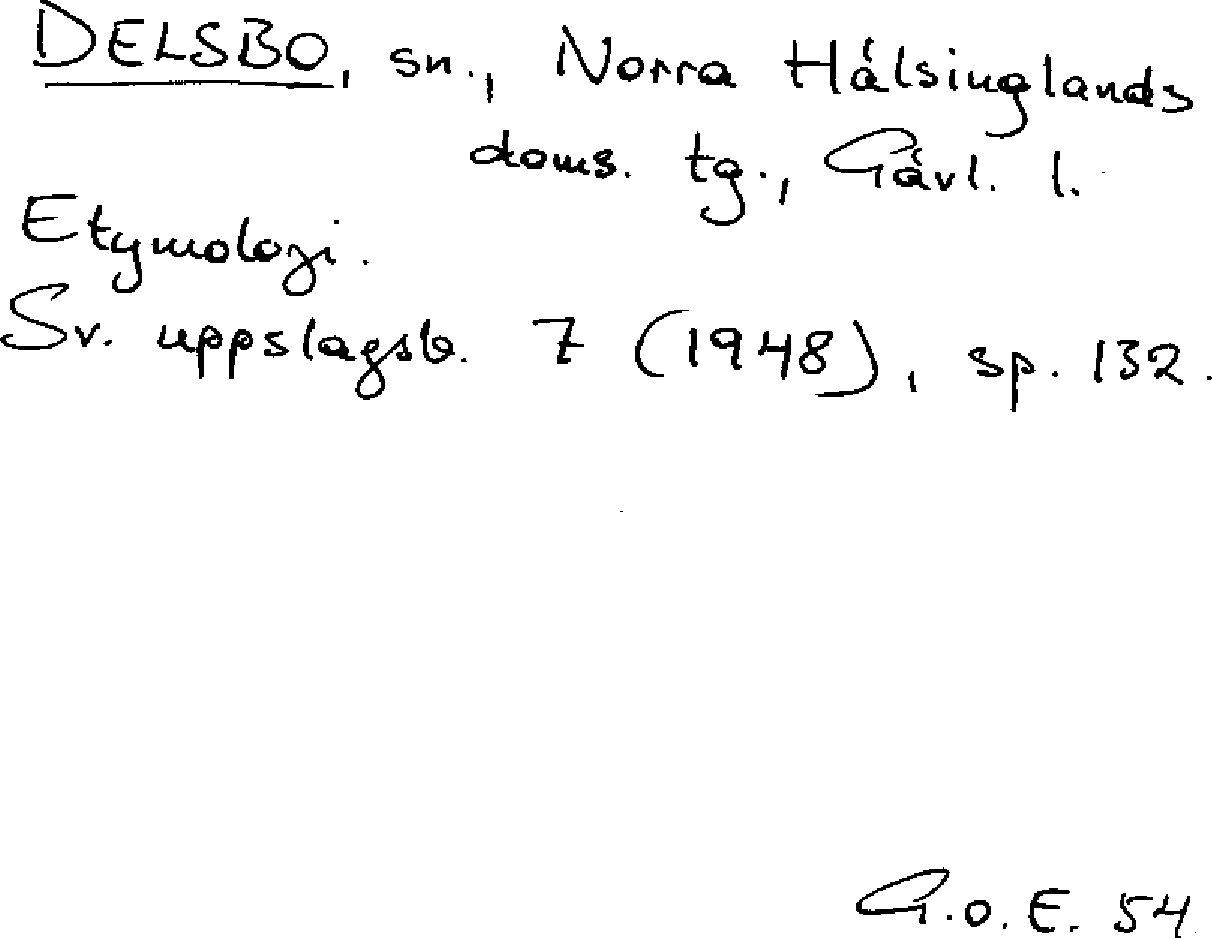 DELSBO, sn., Norra Hälsinglands
doms. tg., Gävl. l.
Etymologi.
Sv. uppslagsb. 7 (1948), sp. 132.
G.O.E. 54